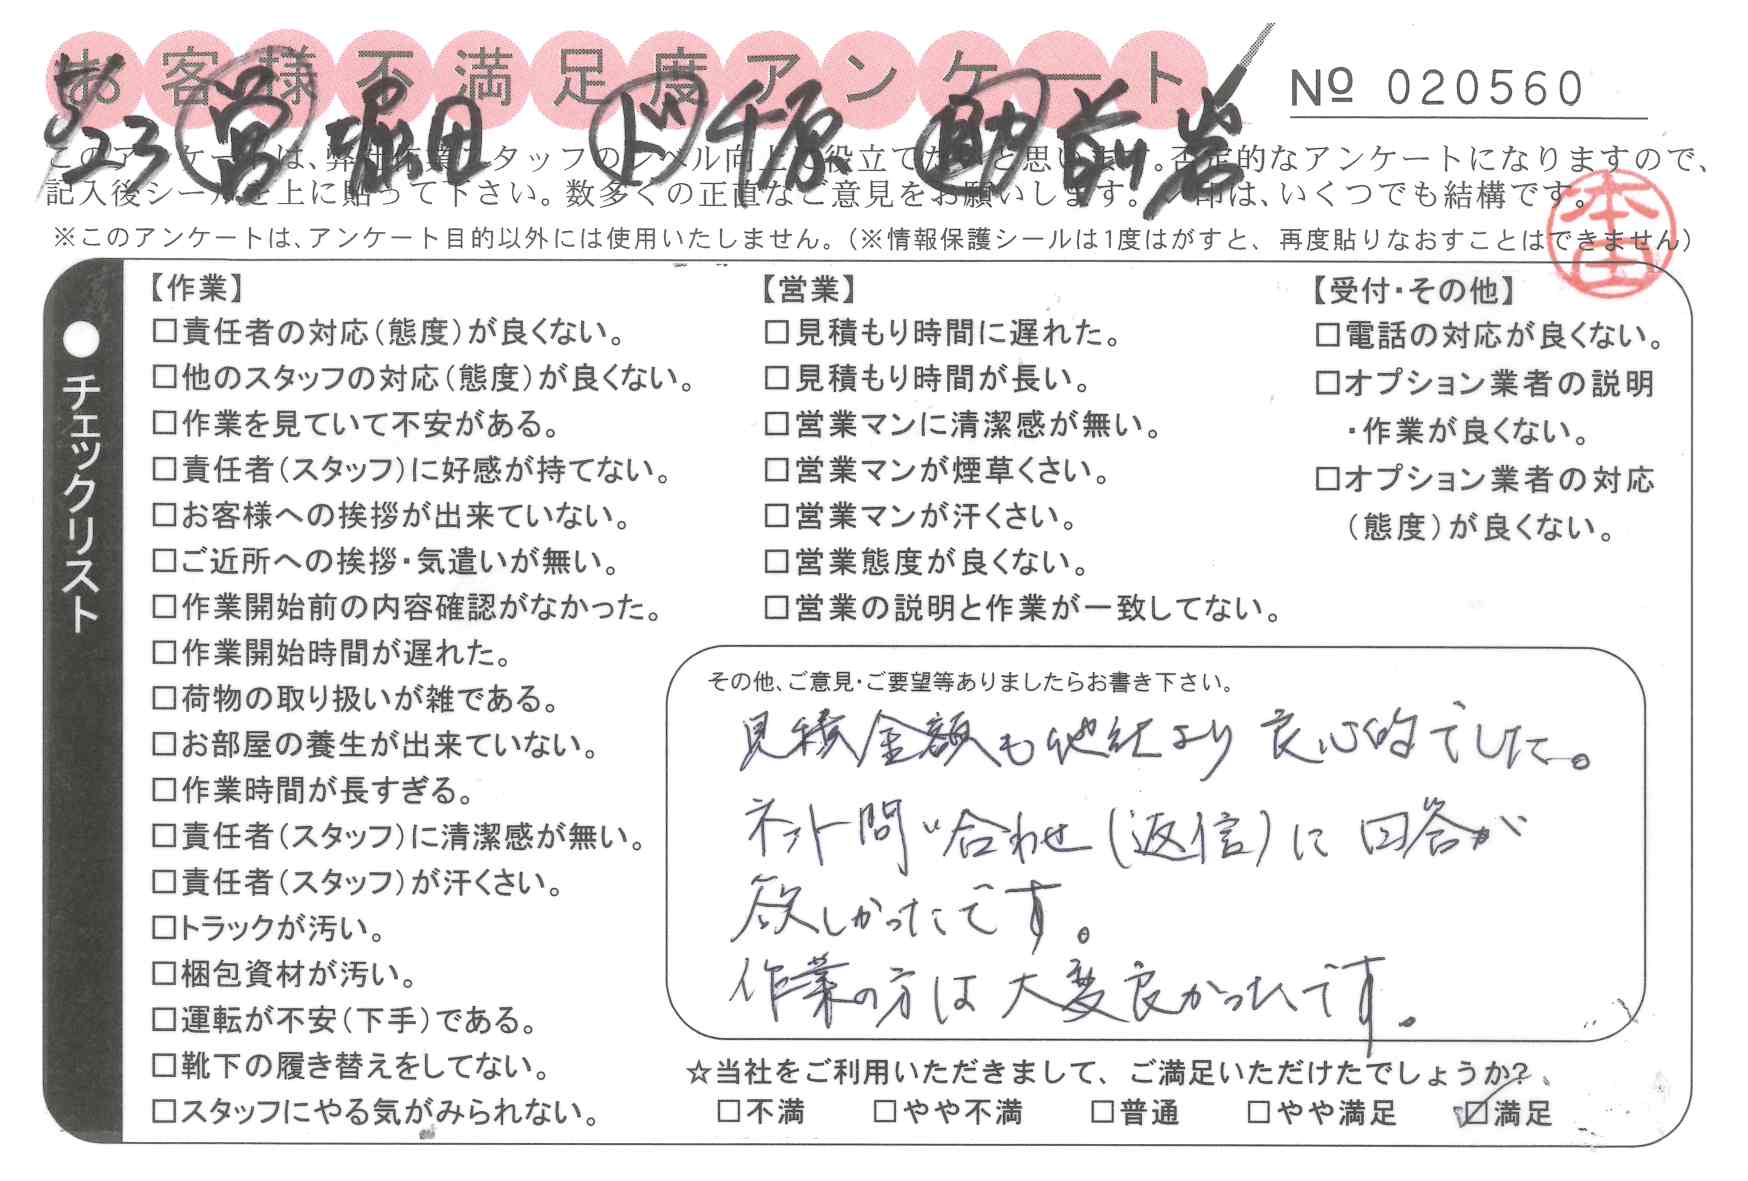 お客様不満足度アンケート
№ 020560
5/23 営 堀田 ド 千原 助 前岩
このアンケートは、弊社作業スタッフのレベル向上に役立てたいと思います。否定的なアンケートになりますので、
記入後シールを上に貼って下さい。数多くの正直なご意見をお願いします。✓印は、いくつでも結構です。
※このアンケートは、アンケート目的以外には使用いたしません。(※情報保護シールは1度はがすと、再度貼りなおすことはできません)
本田
●チェックリスト
【作業】
□責任者の対応(態度)が良くない。
□他のスタッフの対応(態度)が良くない。
□作業を見ていて不安がある。
□責任者(スタッフ)に好感が持てない。
□お客様への挨拶が出来ていない。
□ご近所への挨拶・気遣いが無い。
□作業開始前の内容確認がなかった。
□作業開始時間が遅れた。
□荷物の取り扱いが雑である。
□お部屋の養生が出来ていない。
□作業時間が長すぎる。
□責任者(スタッフ)に清潔感が無い。
□責任者(スタッフ)が汗くさい。
□トラックが汚い。
□梱包資材が汚い。
□運転が不安(下手)である。
□靴下の履き替えをしてない。
□スタッフにやる気がみられない。
【営業】
□見積もり時間に遅れた。
□見積もり時間が長い。
□営業マンに清潔感が無い。
□営業マンが煙草くさい。
□営業マンが汗くさい。
□営業態度が良くない。
□営業の説明と作業が一致してない。
【受付・その他】
□電話の対応が良くない。
□オプション業者の説明
・作業が良くない。
□オプション業者の対応
(態度)が良くない。
その他、ご意見・ご要望等ありましたらお書き下さい。
見積金額も他社より良心的でした。
ネット問い合わせ(返信)に回答が
欲しかったです。
作業の方は大変良かったです。
☆当社をご利用いただきまして、ご満足いただけたでしょうか?
□不満 □やや不満 □普通 □やや満足 ☑満足